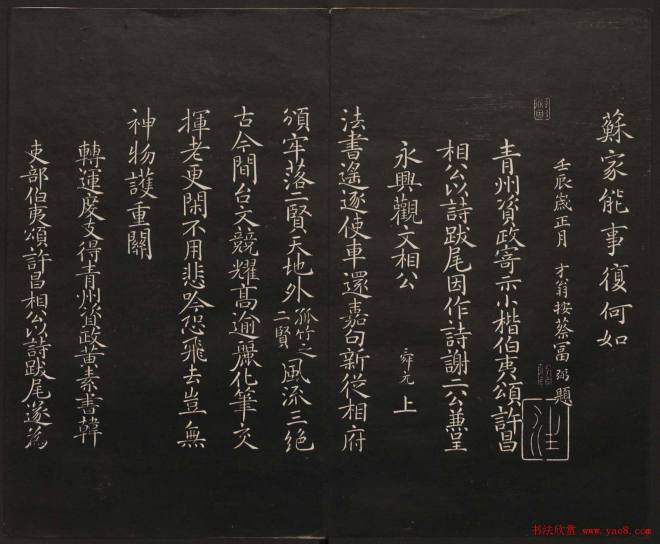 蘇家能事復何如
壬辰歲正月 才翁按蔡富弼題
青州資政寄示小楷伯夷頌許昌
相公以詩跋尾因作詩謝二公兼呈
永興觀文相公 舜元上
法書遙逐使車還嘉句新從相府
頒牢落二賢天地外孤竹之二賢風流三絕
古今間台文競耀高逾麗化筆交
揮老更閑不用悲吟恐飛去豈無
神物護重關
轉運度支得青州資政黃素書韓
吏部伯夷頌許昌相公以詩跋尾遂為
书法欣赏 www.yac8.com